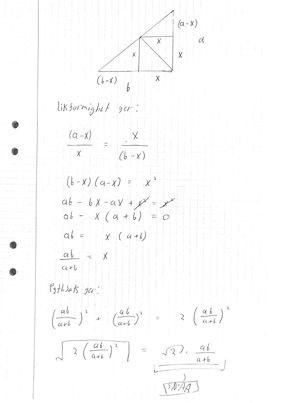 (a-x)
x
a
x
x
(b-x)
x
b
likformighet ger:
(a-x)/x = x/(b-x)
(b-x)(a-x) = x²
ab - bx - ax + x² = x²
ab - x(a+b) = 0
ab = x(a+b)
ab/(a+b) = x
Pythagoras ger:
(ab/(a+b))² + (ab/(a+b))² = 2(ab/(a+b))²
√(2(ab/(a+b))²) = √2 · ab/(a+b)